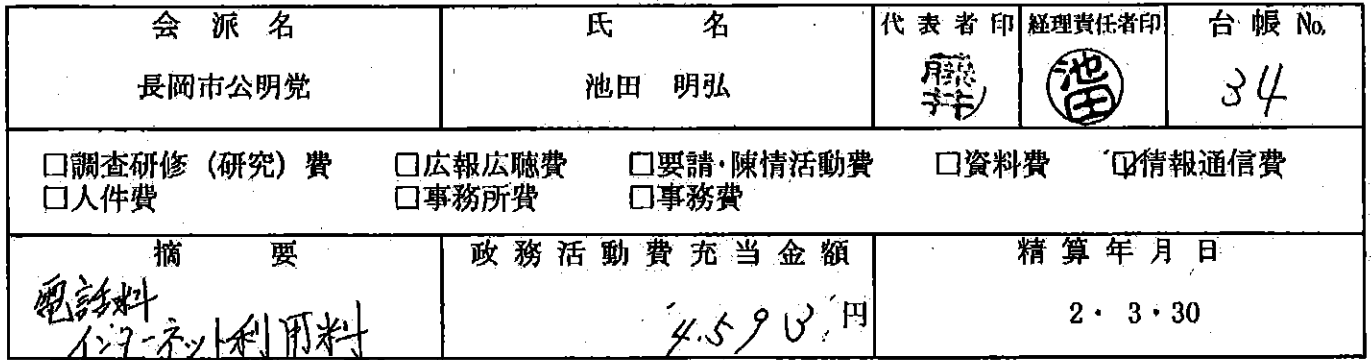 会派名 氏名 代表者印 経理責任者印 台帳No.
長岡市公明党 池田 明弘 池田 34
□調査研修（研究）費 □広報広聴費 □要請・陳情活動費 □資料費 ☑情報通信費
□人件費 □事務所費 □事務費
摘要 政務活動費充当金額 精算年月日
電話料
インターネット利用料 4,593円 2・3・30